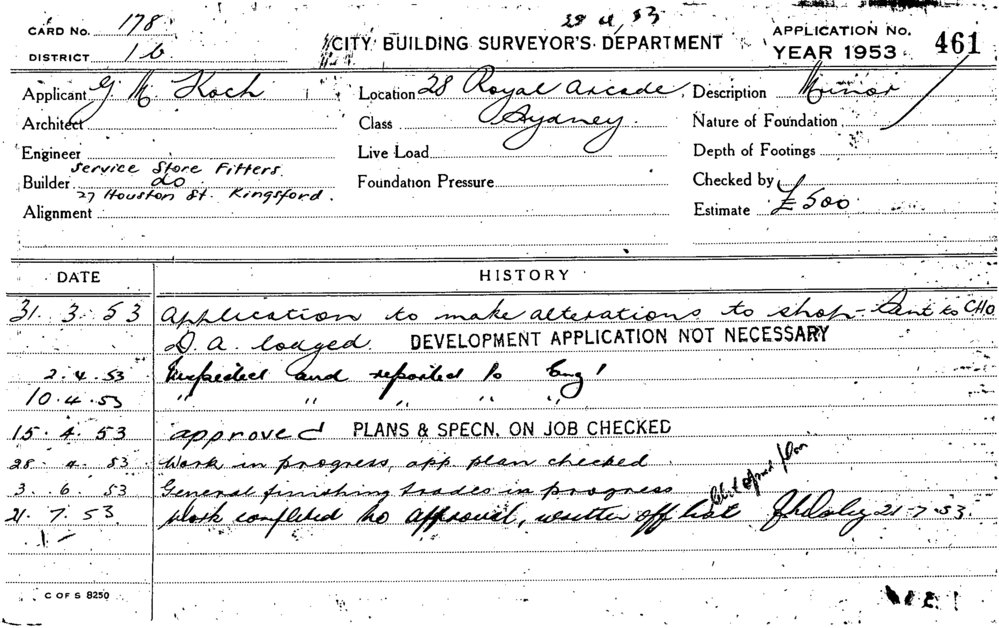 28 4 53
CARD No. 178
DISTRICT 16
CITY BUILDING SURVEYOR'S DEPARTMENT
APPLICATION No. 461
YEAR 1953
Applicant G M Koch
Location 28 Royal Arcade
Description Minor
Architect
Class Sydney.
Nature of Foundation
Engineer
Live Load
Depth of Footings
Service Store Fitters.
Builder do
Foundation Pressure
Checked by
27 Houston St. Kingsford.
Alignment
Estimate £500
DATE HISTORY
31. 3. 53 Application to make alterations to shop - to CHO
D. A. lodged. DEVELOPMENT APPLICATION NOT NECESSARY
2. 4. 53 Inspected and reported to Eng'
10. 4. 53 " " " " "
15. 4. 53 approved PLANS & SPECN. ON JOB CHECKED
28. 4. 53 Work in progress, app. plan checked
3. 6. 53 General finishing trades in progress
21. 7. 53 Work completed to approval, written off list 21-7-53.
C OF S 8250